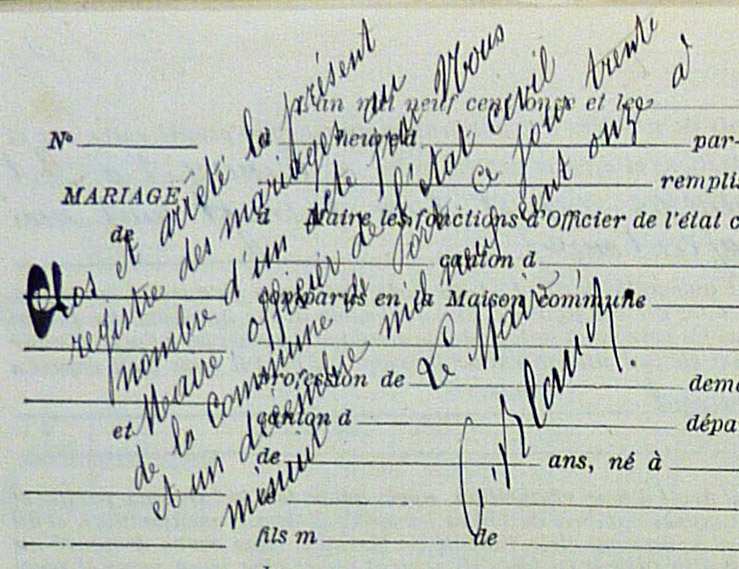 an mil neuf cent onze et le
N°
à heure d
par-
MARIAGE
remplis
d Maire les fonctions d'Officier de l'état c
de
canton d
comparus en la Maison commune
profession de
dem
et
canton d
dépa
de
ans, né à
fils m
de
Clos et arrêté le présent
registre des mariages au
nombre d'un acte par Nous
Maire officier de l'état civil
de la Commune de ce jour trente
et un décembre mil neuf cent onze à
minuit
Le Maire